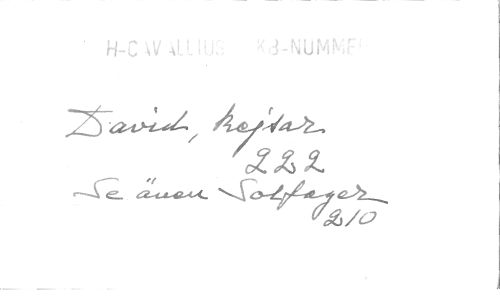 H-CAVALLIUS KB-NUMMER
David, kejsar
222
Se även Solfager
210